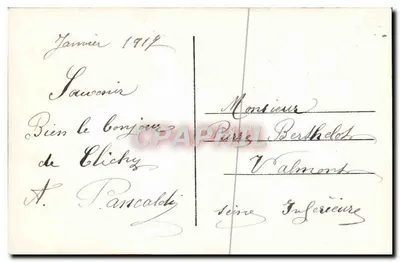 Janvier 1917
Souvenir
Bien le bonjour
de Clichy
A. Pancaldi
Monsieur
Pierre Berthelot
Valmont
Seine Inférieure
CPAPHIL